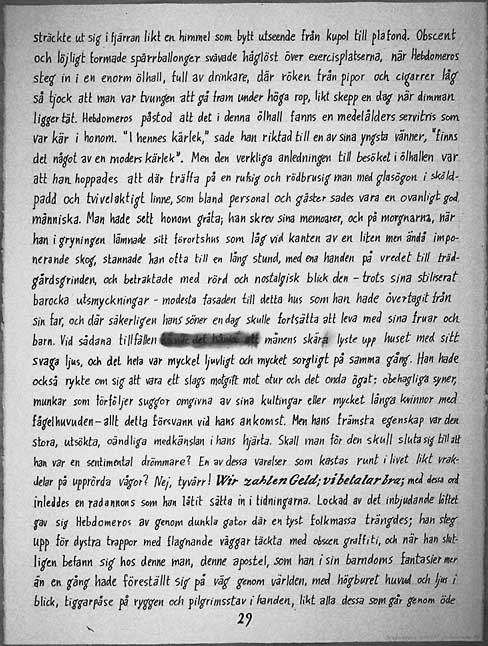 sträckte ut sig i fjärran likt en himmel som bytt utseende från kupol till plafond. Obscent
och löjligt formade spärrballonger svävade håglöst över exercisplatserna, när Hebdomeros
steg in i en enorm ölhall, full av drinkare, där röken från pipor och cigarrer låg
så tjock att man var tvungen att gå fram under höga rop, likt skepp en dag när dimman
ligger tät. Hebdomeros påstod att det i denna ölhall fanns en medelålders servitris som
var kär i honom. "I hennes kärlek," sade han riktad till en av sina yngsta vänner, "finns
det något av en moders kärlek". Men den verkliga anledningen till besöket i ölhallen var
att han hoppades att där träffa på en rufsig och rödbrusig man med glasögon i sköld-
padd och tvivelaktigt linne, som bland personal och gäster sades vara en ovanligt god
människa. Man hade sett honom gråta; han skrev sina memoarer, och på morgnarna, när
han i gryningen lämnade sitt förortshus som låg vid kanten av en liten men ändå impo-
nerande skog, stannade han ofta till en lång stund, med ena handen på vredet till träd-
gårdsgrinden, och betraktade med rörd och nostalgisk blick den - trots sina stilserat
barocka utsmyckningar - modesta fasaden till detta hus som han hade övertagit från
sin far, och där säkerligen hans söner en dag skulle fortsätta att leva med sina fruar och
barn. Vid sådana tillfällen månens skära lyste upp huset med sitt
svaga ljus, och det hela var mycket ljuvligt och mycket sorgligt på samma gång. Han hade
också rykte om sig att vara ett slags motgift mot otur och det onda ögat: obehagliga syner,
munkar som förföljer suggor omgivna av sina kultingar eller mycket långa kvinnor med
fågelhuvuden - allt detta försvann vid hans ankomst. Men hans främsta egenskap var den
stora, utsökta, oändliga medkänslan i hans hjärta. Skall man för den skull sluta sig till att
han var en sentimental drömmare? En av dessa varelser som kastas runt i livet likt vrak-
delar på upprörda vågor? Nej, tyvärr! Wir zahlen Geld; vi betalar bra; med dessa ord
inleddes en radannons som han låtit sätta in i tidningarna. Lockad av det inbjudande löftet
gav sig Hebdomeros av genom dunkla gator där en tyst folkmassa trängdes; han steg
upp för dystra trappor med flagnande väggar täckta med obscen graffiti, och när han slut-
ligen befann sig hos denne man, denne apostel, som han i sin barndoms fantasier mer
än en gång hade föreställt sig på väg genom världen, med högburet huvud och ljus i
blick, tiggarpåse på ryggen och pilgrimsstav i handen, likt alla dessa som går genom öde
29